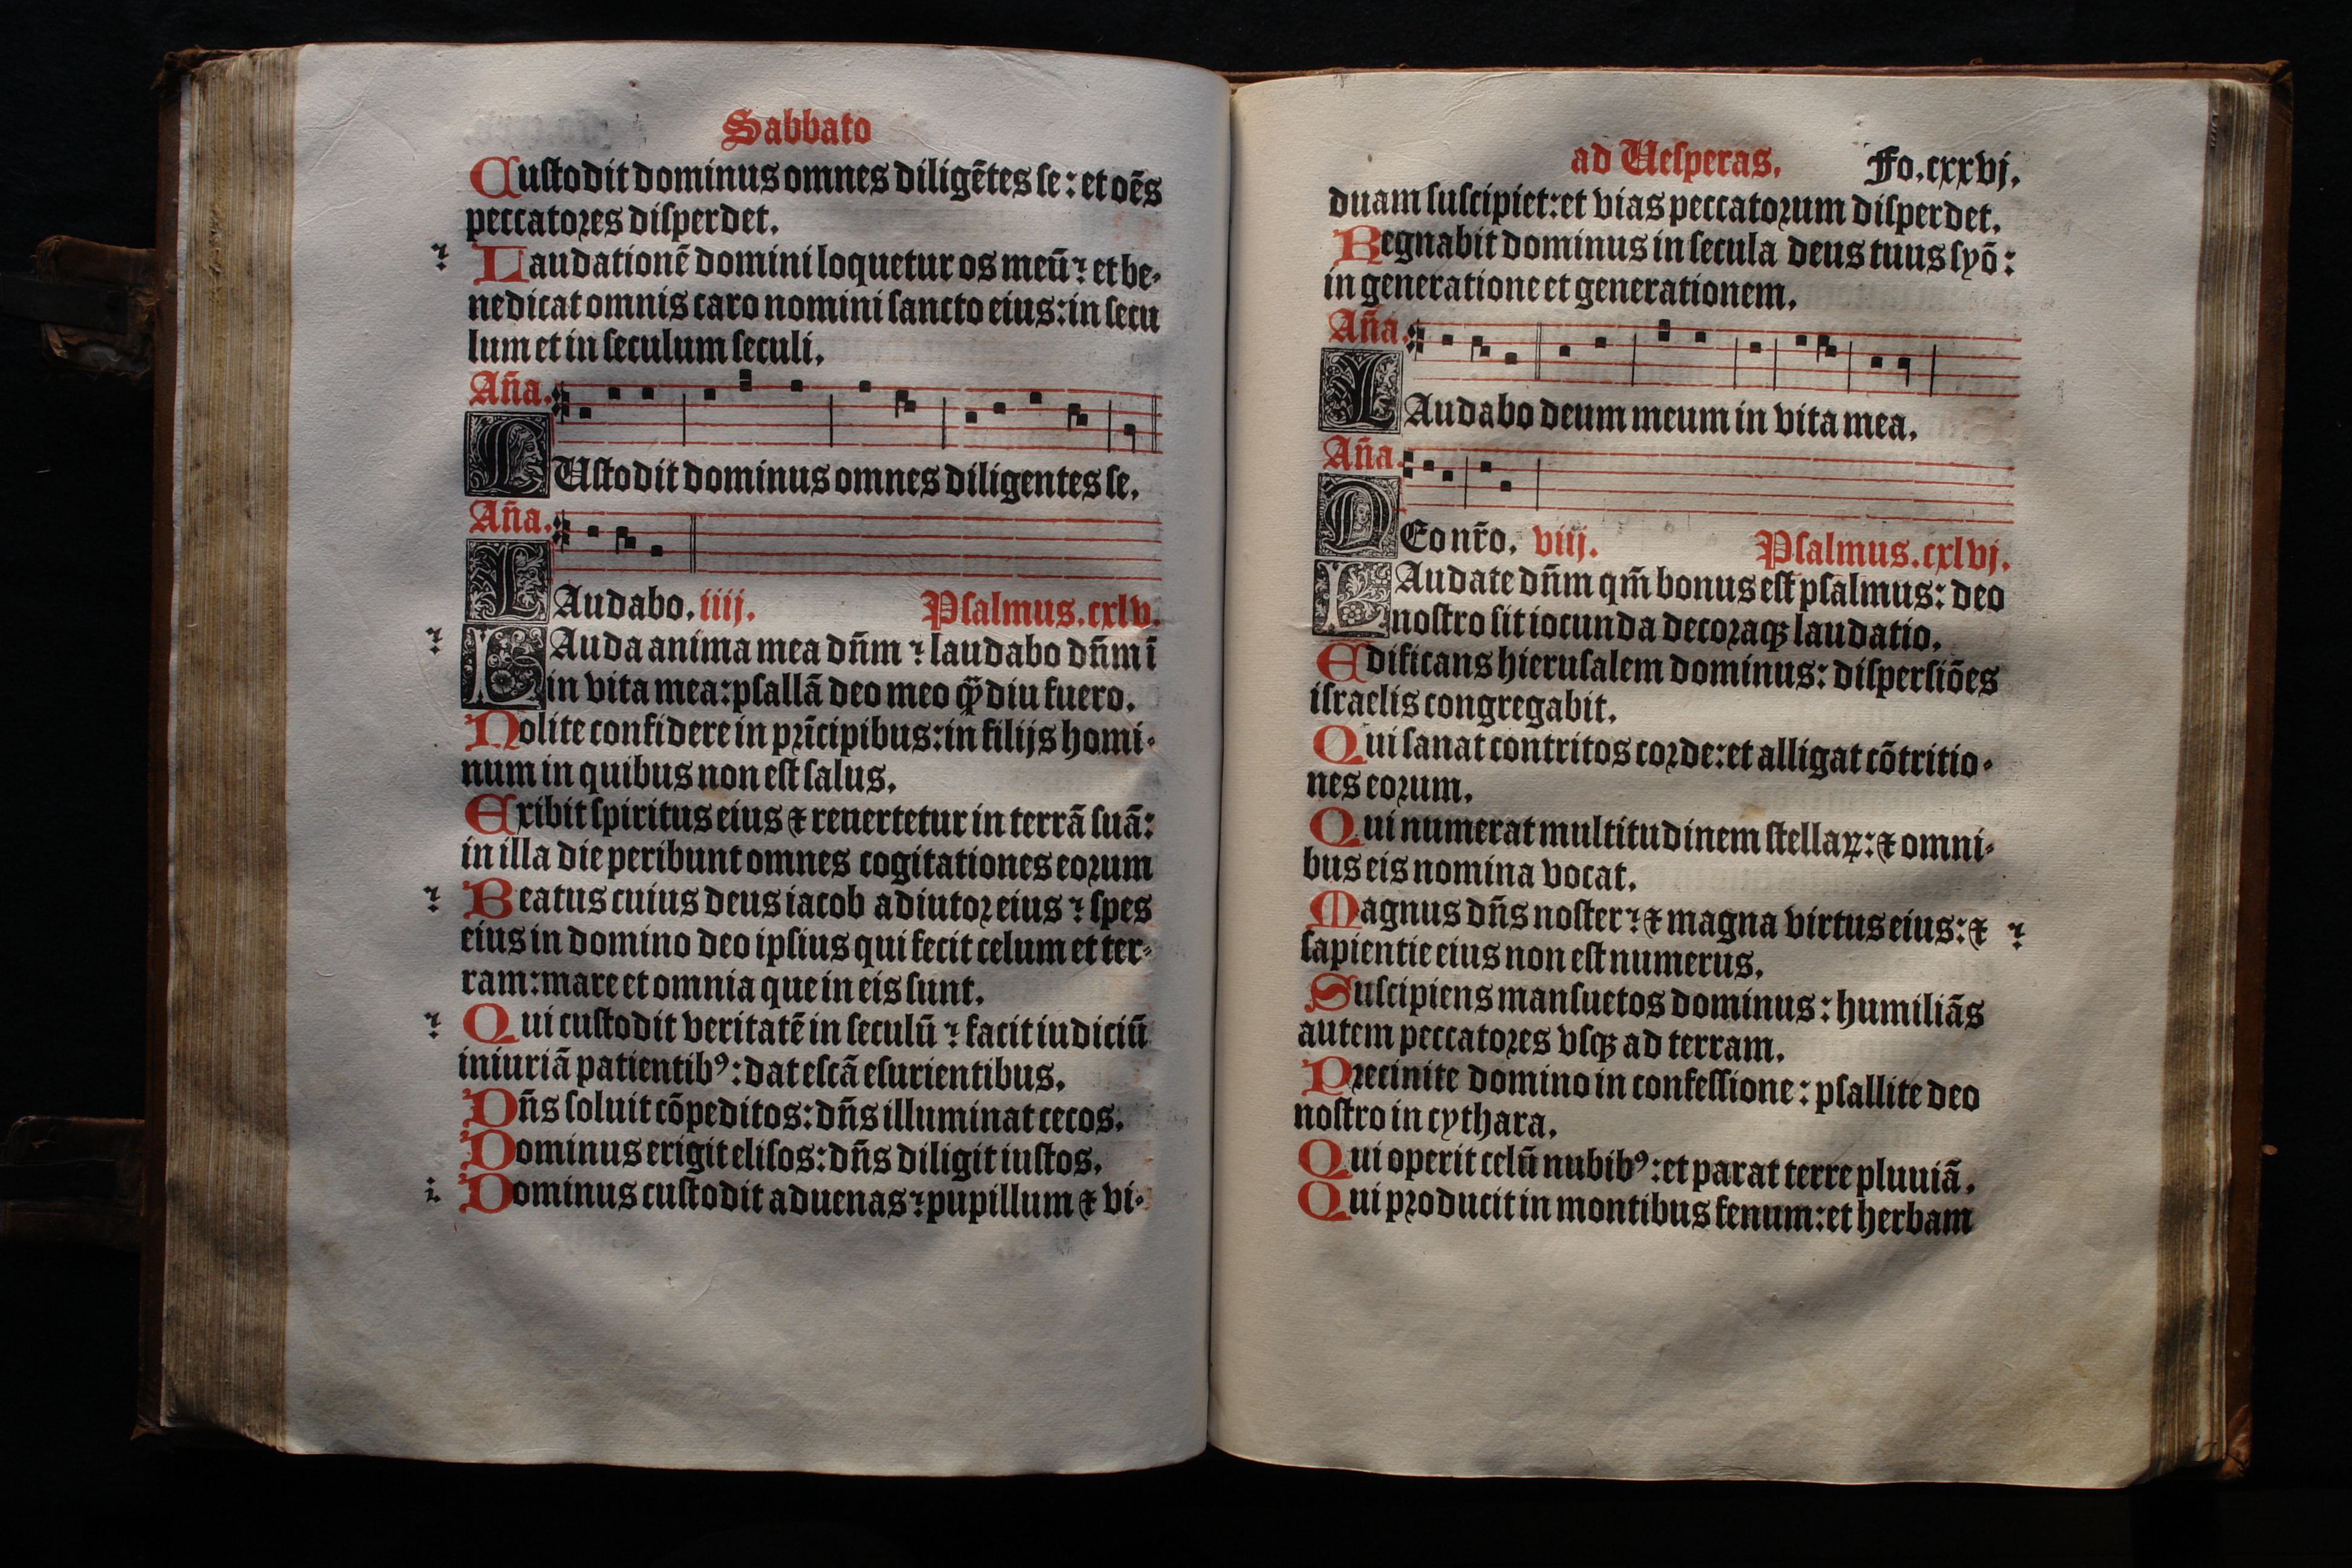 Sabbato
Custodit dominus omnes diligētes se: et oēs
peccatores disperdet.
Laudationē domini loquetur os meū: et be-
nedicat omnis caro nomini sancto eius: in secu
lum et in seculum seculi.
Aña.
CUstodit dominus omnes diligentes se.
Aña.
LAudabo. iiij. Psalmus. cxlv.
LAuda anima mea dñm: laudabo dñm ī
in vita mea: psallā deo meo q̄ȝdiu fuero.
Nolite confidere in prīcipibus: in filijs homi-
num in quibus non est salus.
Exibit spiritus eius ⁊ reuertetur in terrā suā:
in illa die peribunt omnes cogitationes eorum
Beatus cuius deus iacob adiutor eius: spes
eius in domino deo ipsius qui fecit celum et ter-
ram: mare et omnia que in eis sunt.
Qui custodit veritatē in seculū: facit iudiciū
iniuriā patientibꝰ: dat escā esurientibus.
Dñs soluit cōpeditos: dñs illuminat cecos.
Dominus erigit elisos: dñs diligit iustos.
Dominus custodit aduenas: pupillum ⁊ vi-
ad Uesperas. Fo. cxxvj.
duam suscipiet: et vias peccatorum disperdet.
Regnabit dominus in secula deus tuus syō:
in generatione et generationem.
Aña.
LAudabo deum meum in vita mea.
Aña.
DEo nr̄o. viij. Psalmus. cxlvj.
LAudate dñm qm̄ bonus est psalmus: deo
nostro sit iocunda decoraqꝫ laudatio.
Edificans hierusalem dominus: dispersiōes
israelis congregabit.
Qui sanat contritos corde: et alligat cōtritio-
nes eorum.
Qui numerat multitudinem stellaꝝ: ⁊ omni-
bus eis nomina vocat.
Magnus dñs noster: ⁊ magna virtus eius: ⁊
sapientie eius non est numerus.
Suscipiens mansuetos dominus: humiliās
autem peccatores vsqꝫ ad terram.
Precinite domino in confessione: psallite deo
nostro in cythara.
Qui operit celū nubibꝰ: et parat terre pluuiā.
Qui producit in montibus fenum: et herbam